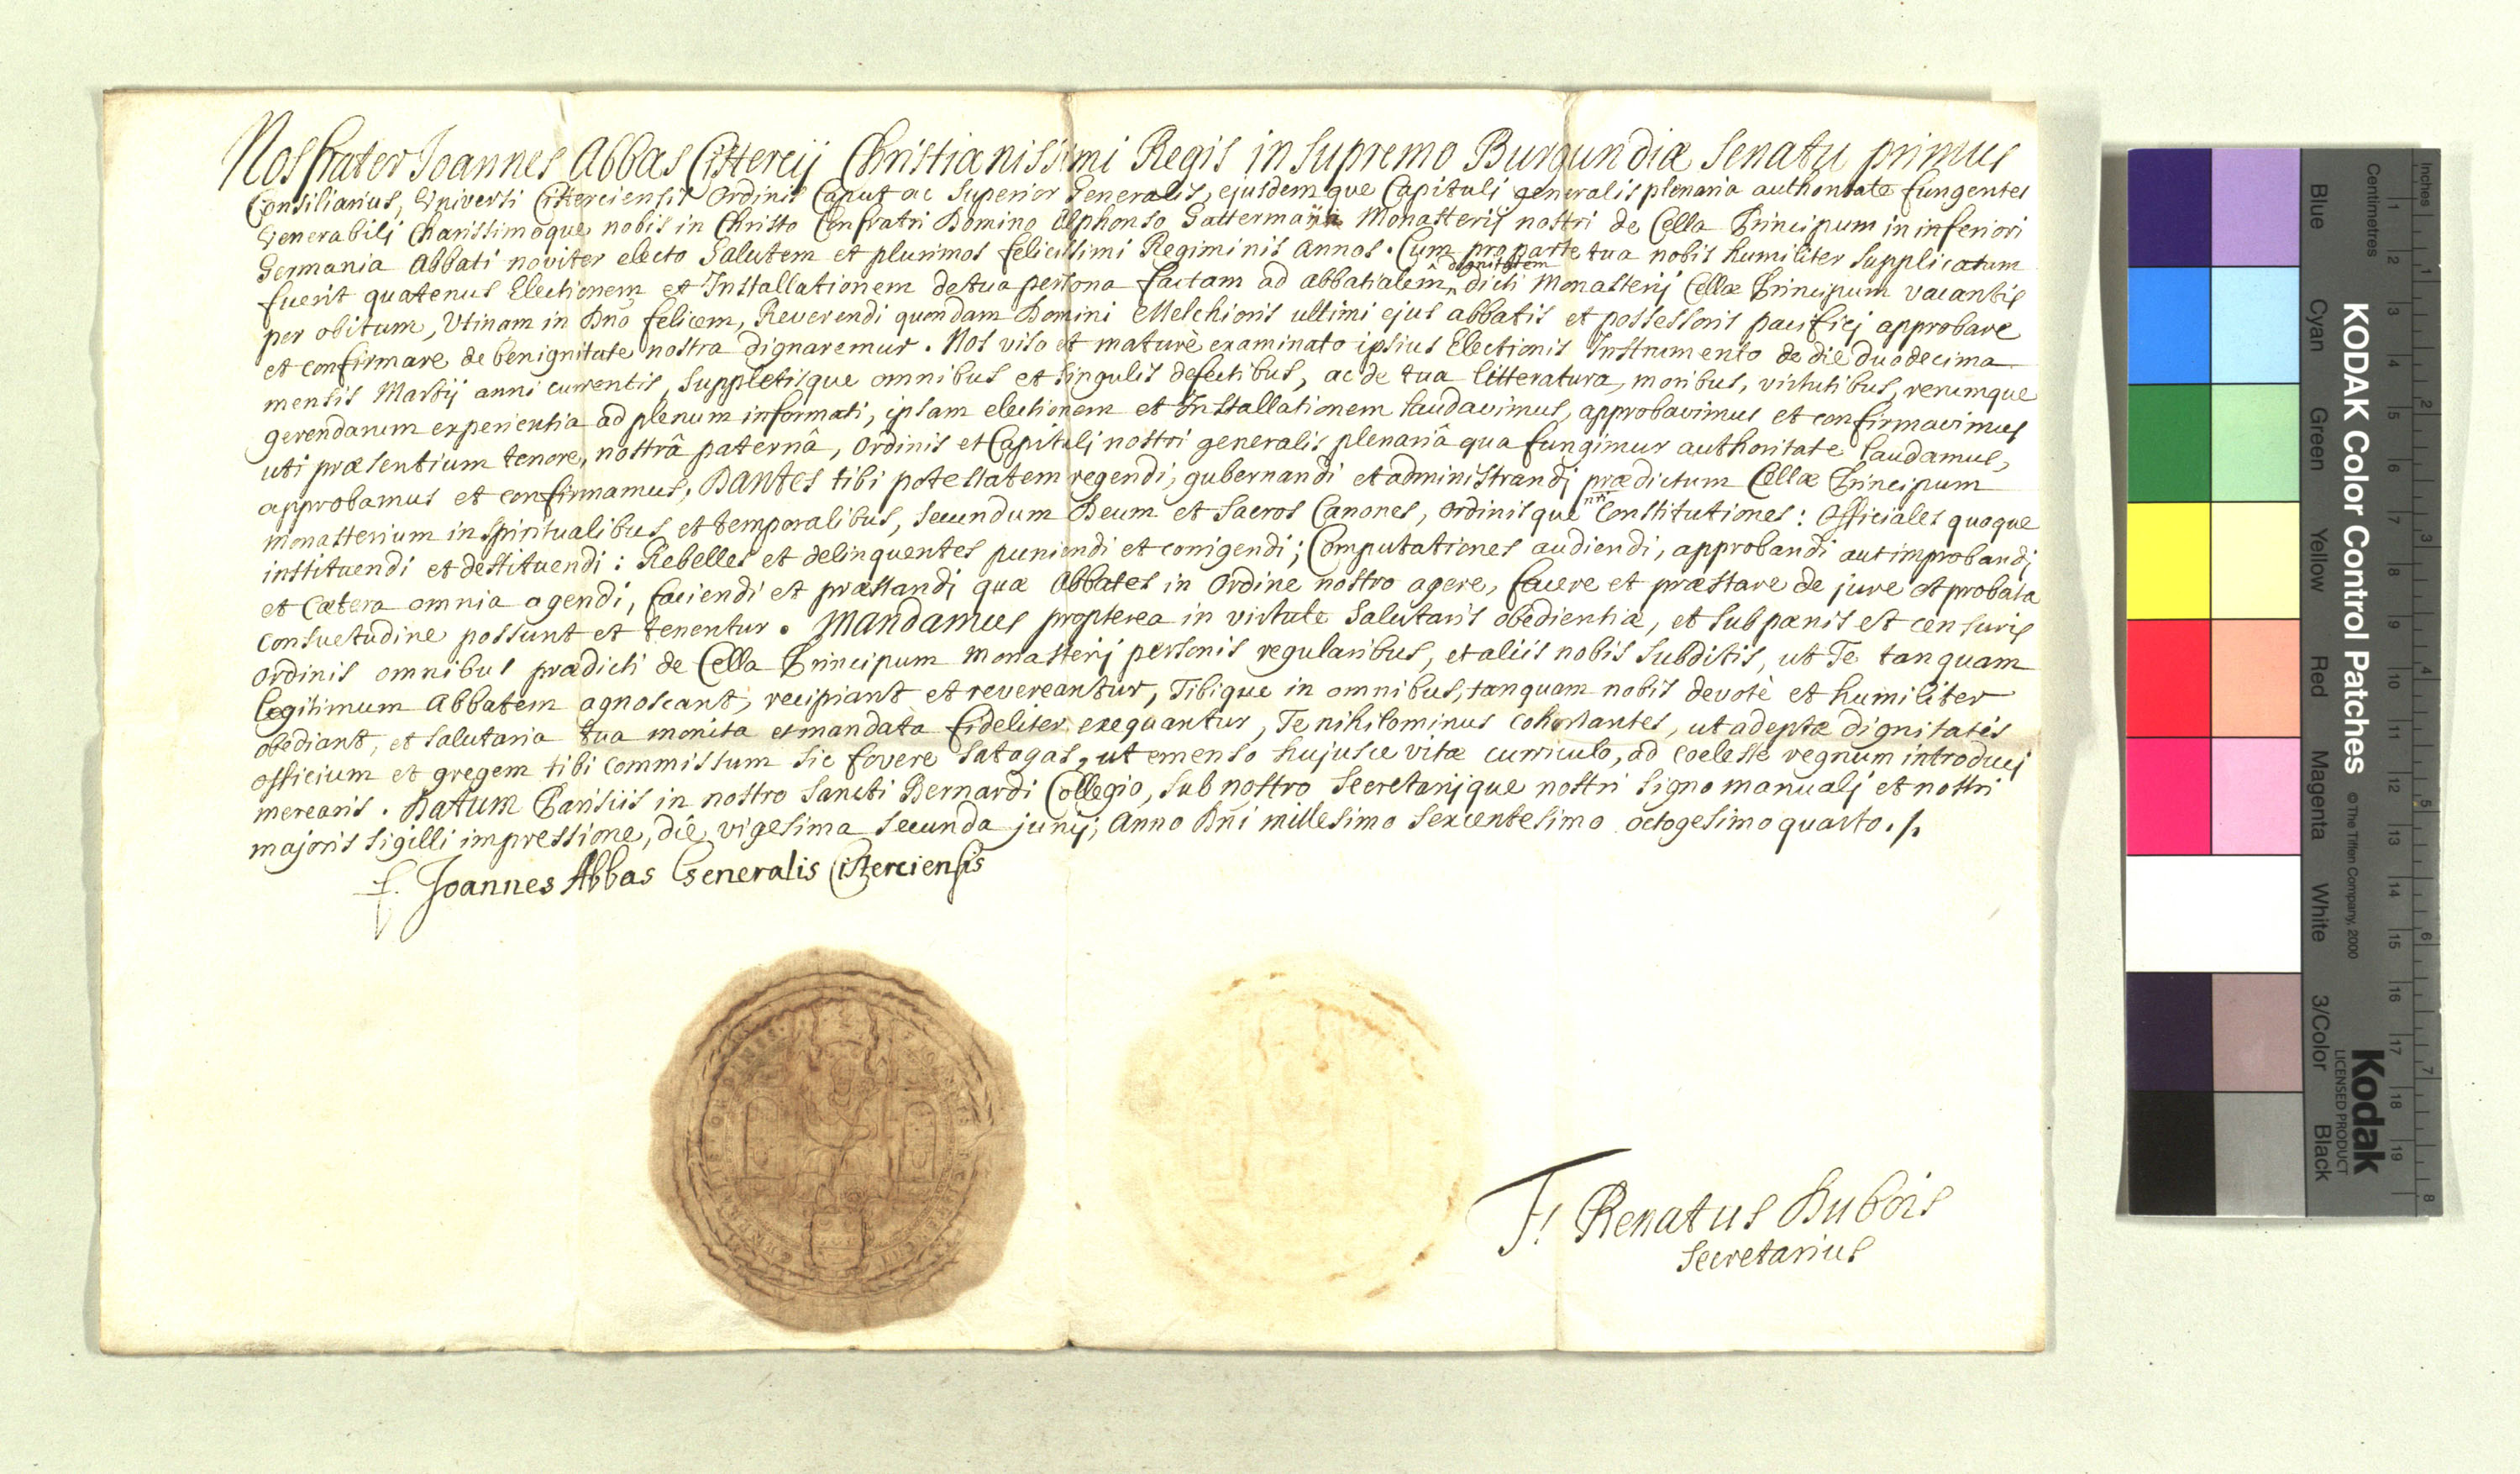 Nos frater Joannes Abbas Cistercij Christianissimi Regis in supremo Burgundiæ Senatu primus
Consiliarius, Universi Cisterciensis Ordinis Caput ac Superior Generalis, ejusdemque Capituli generalis plenaria authoritate fungentes
Venerabilj Charissimoque nobis in Christo Confratri Domino Alphonso Monasterij nostri de Cella Principum in inferiori
Germania Abbati noviter electo Salutem et plurimos felicissimi Regiminis annos. Cum pro parte tua nobis humiliter supplicatum
fuerit quatenus Electionem et Installationem de tua persona factam ad abbatialem dignitatem dicti Monasterij Cellæ Principum vacantis
per obitum, Utinam in Dño felicem, Reverendi quondam Domini Melchioris ultimi ejus abbatis et possessoris pacificj approbare
et confirmare de benignitate nostra dignaremur. Nos viso et maturè examinato ipsius Electionis Instrumento de die duodecima
mensis Martij anni currentis, suppletisque omnibus et singulis defectibus, ac de tua litteratura, moribus, virtutibus, rerumque
gerendarum experientia ad plenum informati, ipsam electionem et Installationem laudavimus, approbavimus et confirmavimus
uti præsentium tenore, nostrâ paternâ, ordinis et Capitulj nostri generalis plenariâ qua fungimur authoritate laudamus,
approbamus et confirmamus, Dantes tibi potestatem regendi, gubernandi et administrandj prædictum Cellæ Principum
monasterium in spiritualibus et temporalibus, secundum Deum et sacros Canones, ordinisque nri Constitutiones: Officiales quoque
instituendi et destituendi: Rebelles et delinquentes puniendi et corrigendi; Computationes audiendi, approbandi aut improbandj
et cætera omnia agendi, faciendi et præstandj quæ Abbates in Ordine nostro agere, facere et præstare de jure et probata
consuetudine possunt et tenentur. Mandamus propterea in virtute salutaris obedientiæ, et sub pænis et censuris
ordinis omnibus prædicti de Cella Principum monasterij personis regularibus, et aliis nobis subditis, ut Te tanquam
legitimum Abbatem agnoscant, recipiant et revereantur, Tibique in omnibus, tanquam nobis devotè et humiliter
obediant, et salutaria tua monita et mandata fideliter exequantur, Te nihilominus cohortantes, ut adeptæ dignitatis
officium et gregem tibi commissum sic fovere satagas, ut emenso hujusce vitæ curriculo, ad coeleste regnum introducj
merearis. Datum Parisiis in nostro sancti Bernardi Collegio, sub nostro Secretarijque nostri signo manualj et nostri
majoris sigilli impressione, die vigesima secunda junij, Anno Dñi millesimo sexcentesimo octogesimo quarto./.
f. Joannes Abbas Generalis Cisterciensis
F. Renatus Dubois
Secretarius
KODAK Color Control Patches © The Tiffen Company, 2000
Kodak
LICENSED PRODUCT
Blue Cyan Green Yellow Red Magenta White 3/Color Black
Centimetres 1 2 3 4 5 6 7 8 9 10 11 12 13 14 15 16 17 18 19
Inches 1 2 3 4 5 6 7 8